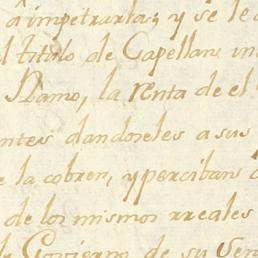 â impetrarlas y se le
el titulo de Capellan in
Ramo, la renta de el
entes dandoseles a sus
e la cobren, y perciban
de los mismos rreales
de Govierno de su